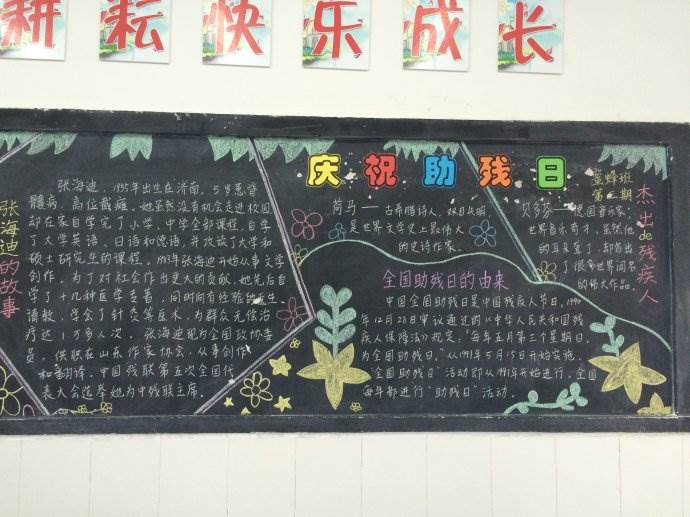 耕耘快乐成长
张海迪的故事
张海迪，1955年出生在济南，5岁患脊
髓病，高位截瘫。她虽然没有机会走进校园
却在家自学完了小学、中学全部课程，自学
了大学英语、日语和德语，并攻读了大学和
硕士研究生的课程。1983年张海迪开始从事文学
创作，为了对社会作出更大的贡献，她先后自
学了十几种医学专著，同时向有经验的医生
请教，学会了针灸等医术，为群众无偿治
疗达1万多人次。张海迪现为全国政协委
员，供职在山东作家协会，从事创作
和翻译。中国残联第五次全国代
表大会选举她为中残联主席。
庆祝助残日
荷马——古希腊诗人，双目失明，
是世界文学史上最伟大
的史诗作家。
全国助残日的由来
中国全国助残日是中国残疾人节日，1990
年12月28日审议通过的《中华人民共和国残
疾人保障法》规定，“每年五月第三个星期日，
为全国助残日。”从1991年5月15日开始实施，
“全国助残日”活动即从1991年开始进行，全国
每年都进行“助残日”活动。
蓝蜂班
第二期
贝多芬——德国音乐家，
世界音乐奇才，虽然他
的耳朵聋了，却谱出
了很多世界闻名
的伟大作品。
杰出de残疾人